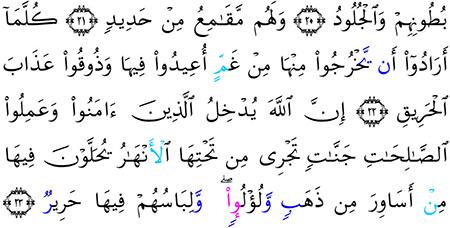 بُطُونِهِمْ وَٱلْجُلُودُ ٢٠ وَلَهُم مَّقَـٰمِعُ مِنْ حَدِيدٍ ٢١ كُلَّمَآ
أَرَادُوٓا۟ أَن يَّخْرُجُوا۟ مِنْهَا مِنْ غَمٍّ أُعِيدُوا۟ فِيهَا وَذُوقُوا۟ عَذَابَ
ٱلْحَرِيقِ ٢٢ إِنَّ ٱللَّهَ يُدْخِلُ ٱلَّذِينَ ءَامَنُوا۟ وَعَمِلُوا۟
ٱلصَّـٰلِحَـٰتِ جَنَّـٰتٍ تَجْرِى مِن تَحْتِهَا ٱلْأَنْهَـٰرُ يُحَلَّوْنَ فِيهَا
مِنْ أَسَاوِرَ مِن ذَهَبٍ وَلُؤْلُؤًا ۖ وَلِبَاسُهُمْ فِيهَا حَرِيرٌ ٢٣